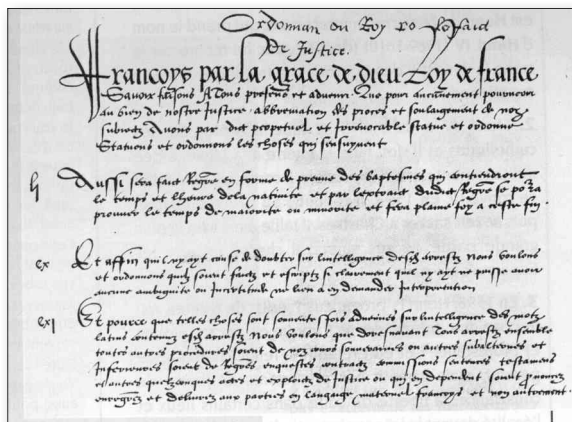 du Roy
De Justice.
Francoys par la grace de dieu Roy de france
Scavoir faisons A Tous presens et advenir. Que pour aucunement pourveoir
au bien de nostre Justice abbreviation des proces et soulagement de noz
subiectz Avons par edict perpetuel et irrevocable statue et ordonne
Statuons et ordonnons les choses qui sensuyvent
li Aussi sera faict Regre en forme de preuve des baptesmes qui contiendront
le temps et lheure de la nativite et par lextraict dudict Regre se pourra
prouver le temps de maiorite ou minorite et fera plaine foy a ceste fin.
cx Et affin quil ny ayt cause de doubter sur lintelligence desd arrestz Nous voulons
et ordonnons quilz soient faictz et escriptz si clairement quil ny ayt ne puisse avoir
aucune ambiguite ou Incertitude ne lieu a en demander Interpretation.
cxi Et pource que telles choses sont souventesfois advenues sur lintelligence des motz
latins contenuz esd arrestz Nous voulons que doresnavant Tous arrestz ensemble
toutes autres procedures soient de noz cours souveraines ou autres subalternes et
Inferieures soient de Regres enquestes contractz commissions sentences testamens
et autres quelzconques actes et exploictz de Justice ou qui en dependent soient prononcez
enregrez et delivrez aux parties en langaige maternel francoys et non autrement.